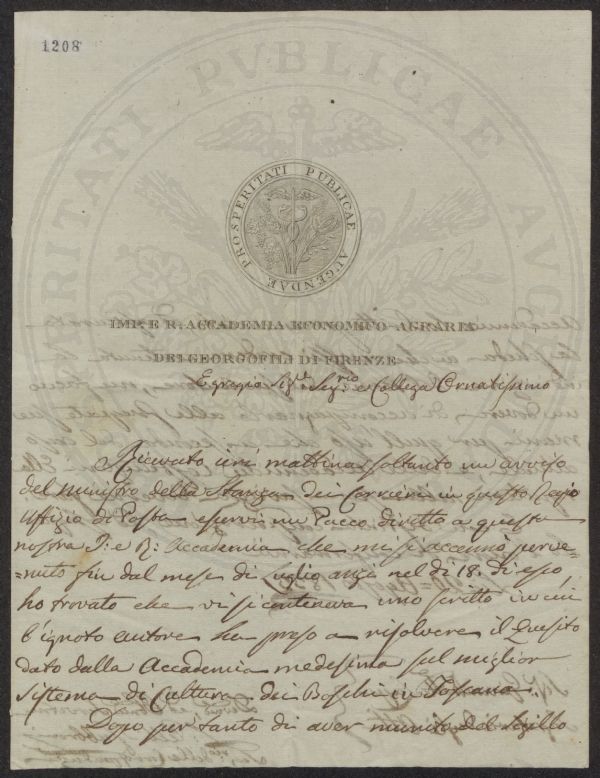 1208
PROSPERITATI PUBLICAE AUGENDAE
IMP. E R. ACCADEMIA ECONOMICO-AGRARIA
DEI GEORGOFILI DI FIRENZE
Egregio Sig.re Seg.rio e Collega Ornatissimo
Ricevuto ieri mattina soltanto un avviso
del Ministro della Stanza dei Corrieri in questo Regio
Uffizio di Posta esservi un Pacco diretto a questa
nostra I: e R: Accademia che mi si accennò perve-
=nuto fin dal mese di Luglio anzi nel dì 18. di esso,
ho trovato che vi si conteneva uno scritto in cui
l'ignoto autore ha preso a risolvere il Quesito
dato dalla Accademia medesima sul miglior
sistema di Cultura dei Boschi in Toscana.
Dopo per tanto di aver munito del sigillo